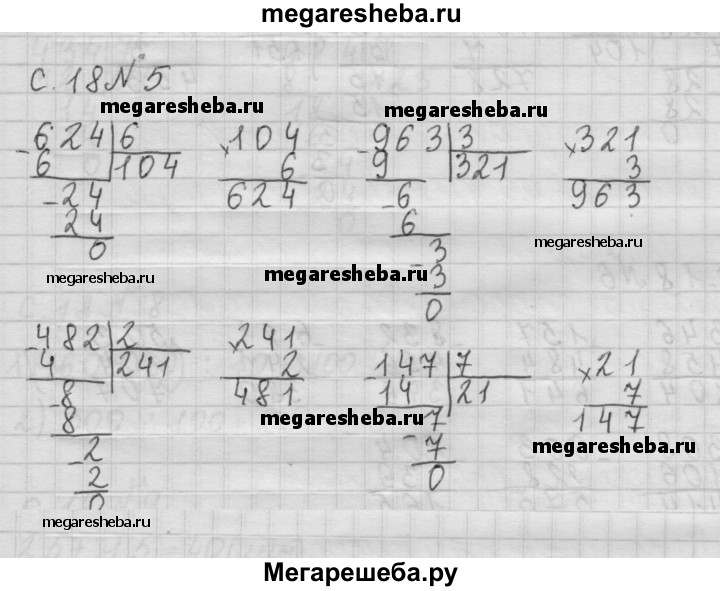 megaresheba.ru
С.18 №5
megaresheba.ru megaresheba.ru
- 624 | 6 × 104 - 963 | 3 × 321
6 | 104 6 9 | 321 3
- 24 624 - 6 963
24 6
0 - 3
3
0
megaresheba.ru megaresheba.ru megaresheba.ru
- 482 | 2 × 241 - 147 | 7 × 21
4 | 241 2 14 | 21 7
- 8 481 - 7 147
8 7
- 2 0
2
0
megaresheba.ru megaresheba.ru megaresheba.ru
Мегарешеба.ру